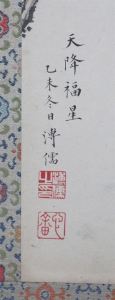 天降福星
乙未冬日溥儒